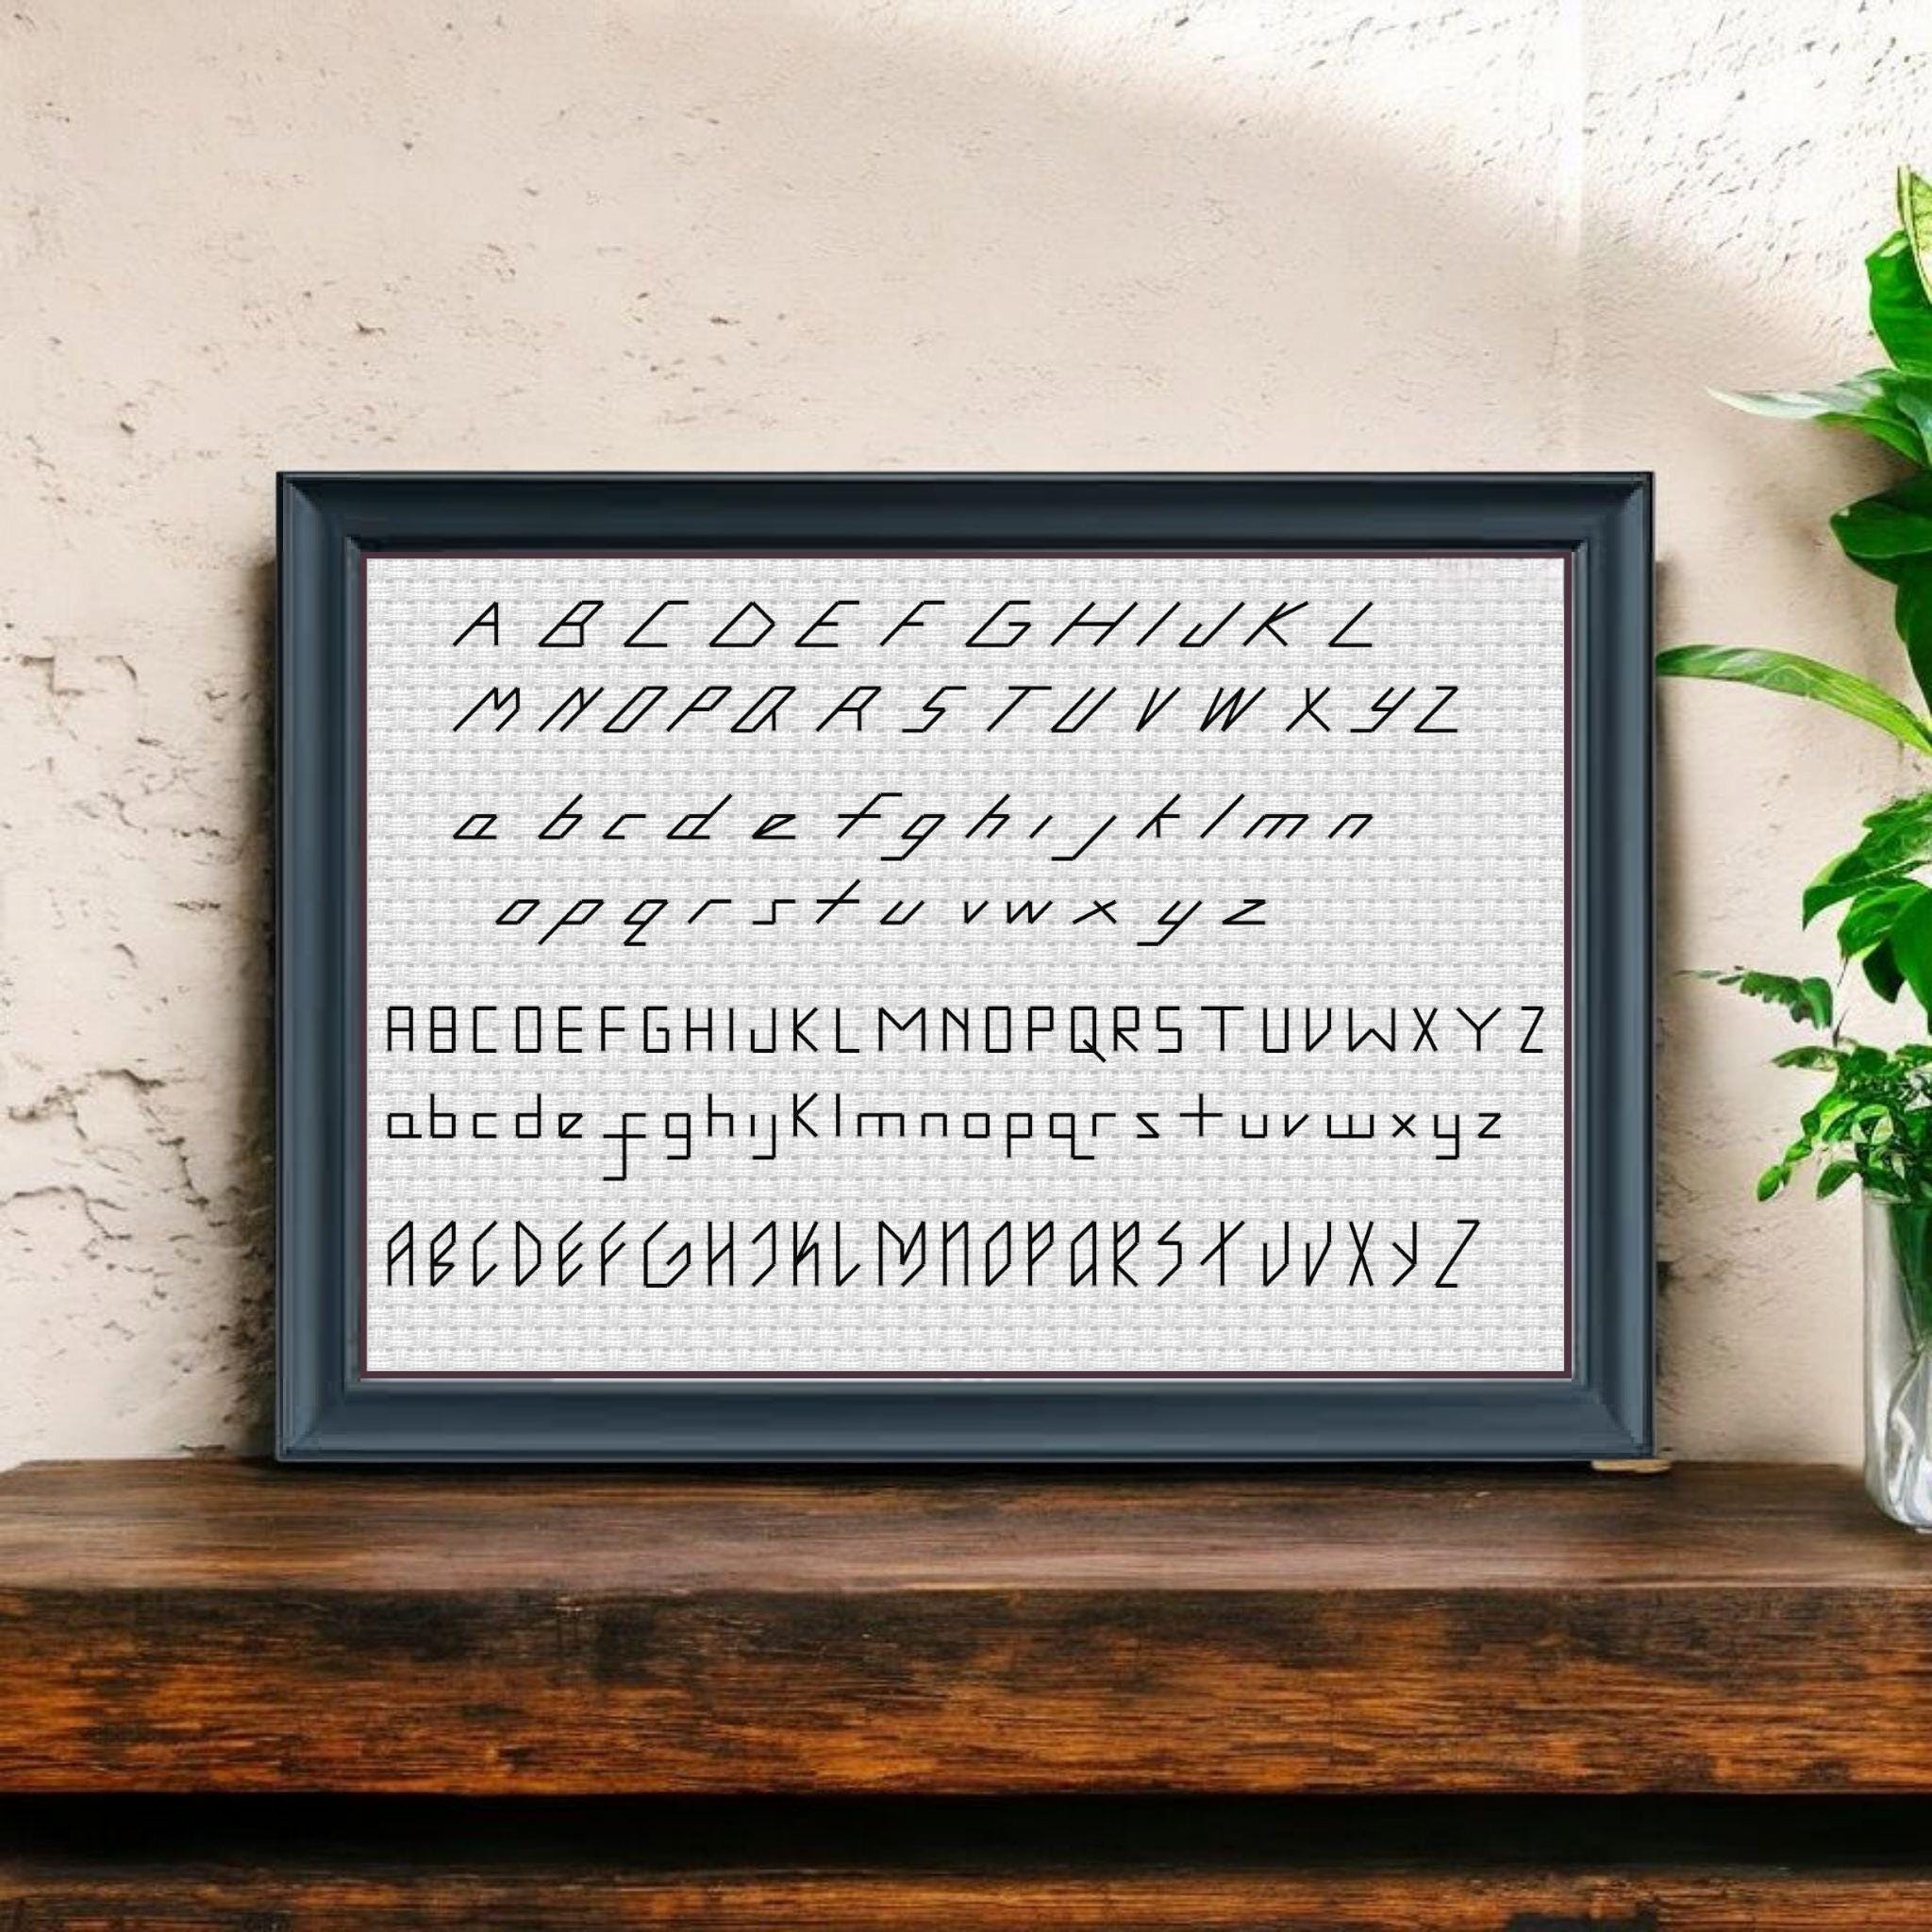 A B C D E F G H I J K L
M N O P Q R S T U V W X Y Z
a b c d e f g h i j k l m n
o p q r s t u v w x y z
A B C D E F G H I J K L M N O P Q R S T U V W X Y Z
a b c d e f g h i j k l m n o p q r s t u v w x y z
A B C D E F G H J K L M N O P Q R S T U V X Y Z